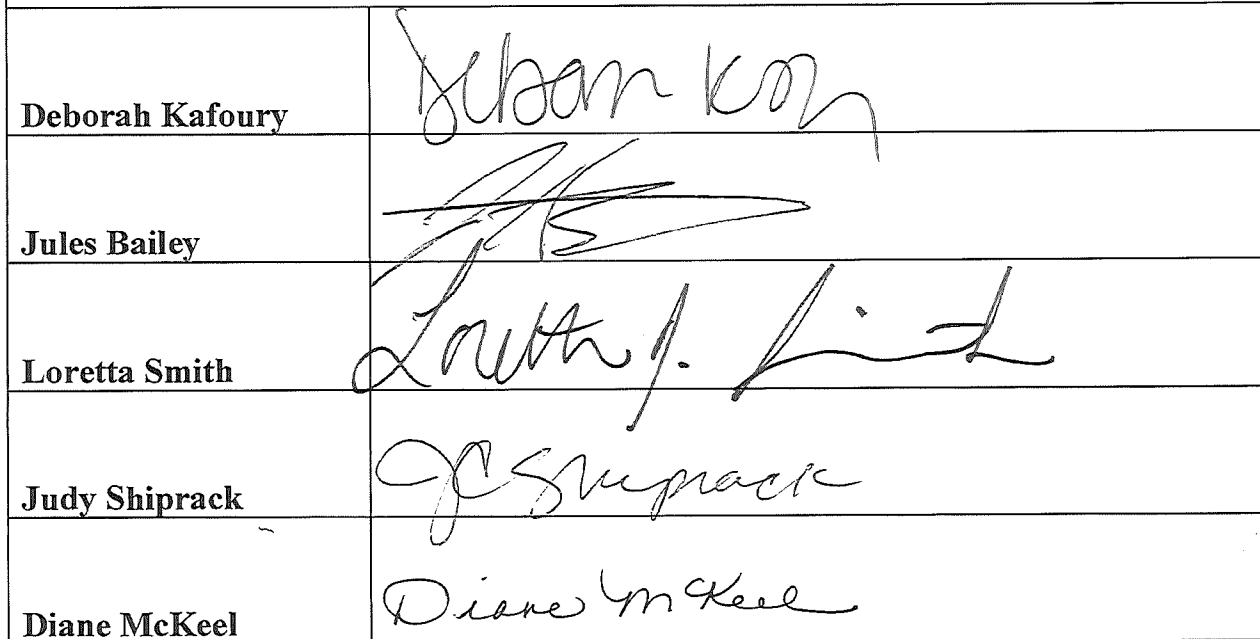 Deborah Kafoury
Jules Bailey
Loretta Smith Loretta J. Smith
Judy Shiprack JC Shiprack
Diane McKeel Diane McKeel